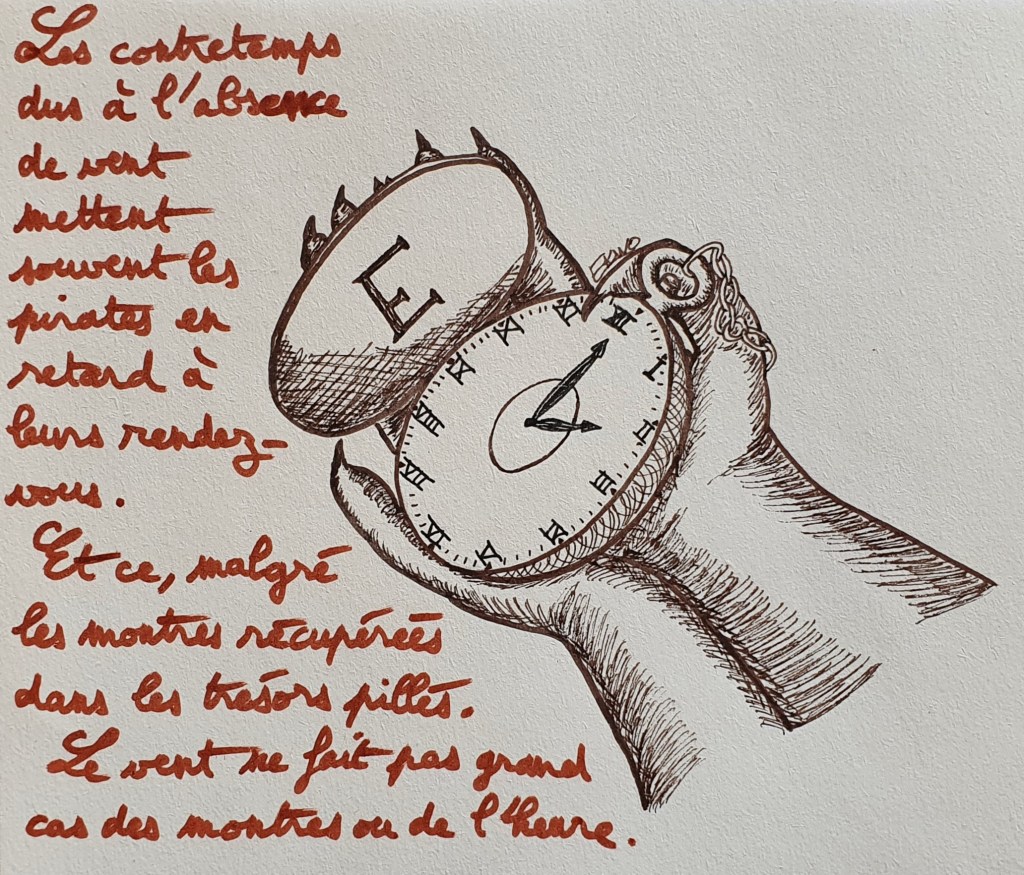 Les contretemps
dus à l'absence
de vent
mettent
souvent les
pirates en
retard à
leurs rendez-
vous.
Et ce, malgré
les montres récupérées
dans les trésors pillés.
Le vent ne fait pas grand
cas des montres ou de l'heure.
E
XII
I
II
III
IV
V
VI
VII
VIII
IX
X
XI